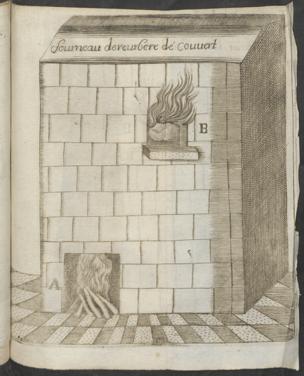 fourneau de reverbere dé couvert
B
A